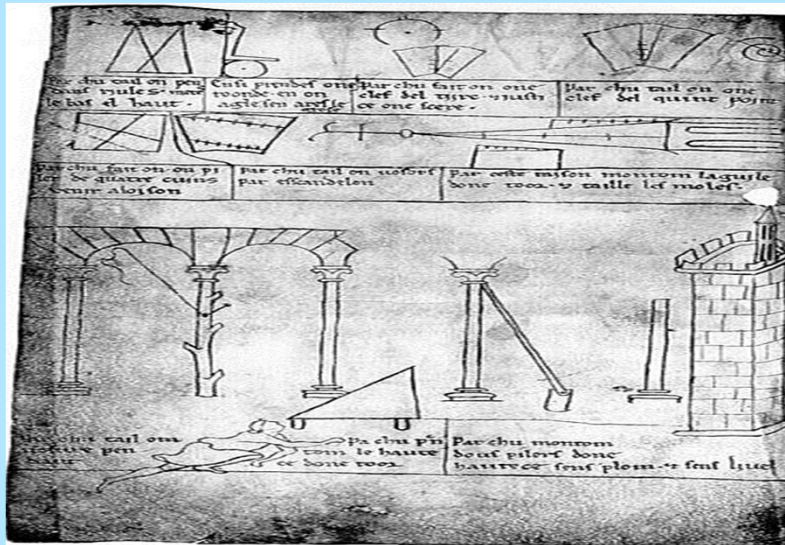 Par chu tail on pen
dans riules. mete
le bas el haut.
Ensi prendes one
roonde. en on
agle sen ares le
grose
Par chu fait on one
clef del tirc. & iusti
ce one scere.
Par chu tail on one
clef del quint point
Par chu fait on. on pi
ler de quatre cuins
venir aloison
Par chu tail on vosors
par escandelon
Par ceste raison montom laguile
done toor. & taille les moles.
chu tail om
vosure pen
dant
Pa chu
tom le haute
ce done toor
Par chu montom
dous pilers done
hautece sens plom. & sens liuel